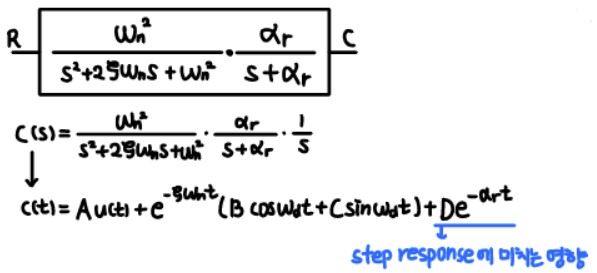 R ωn²/(s²+2ζωns+ωn²) · αr/(s+αr) C
C(s) = ωn²/(s²+2ζωns+ωn²) · αr/(s+αr) · 1/s
↓
c(t) = Au(t) + e^(-ζωnt) (B cosωdt + C sinωdt) + De^(-αrt)
step response에 미치는 영향